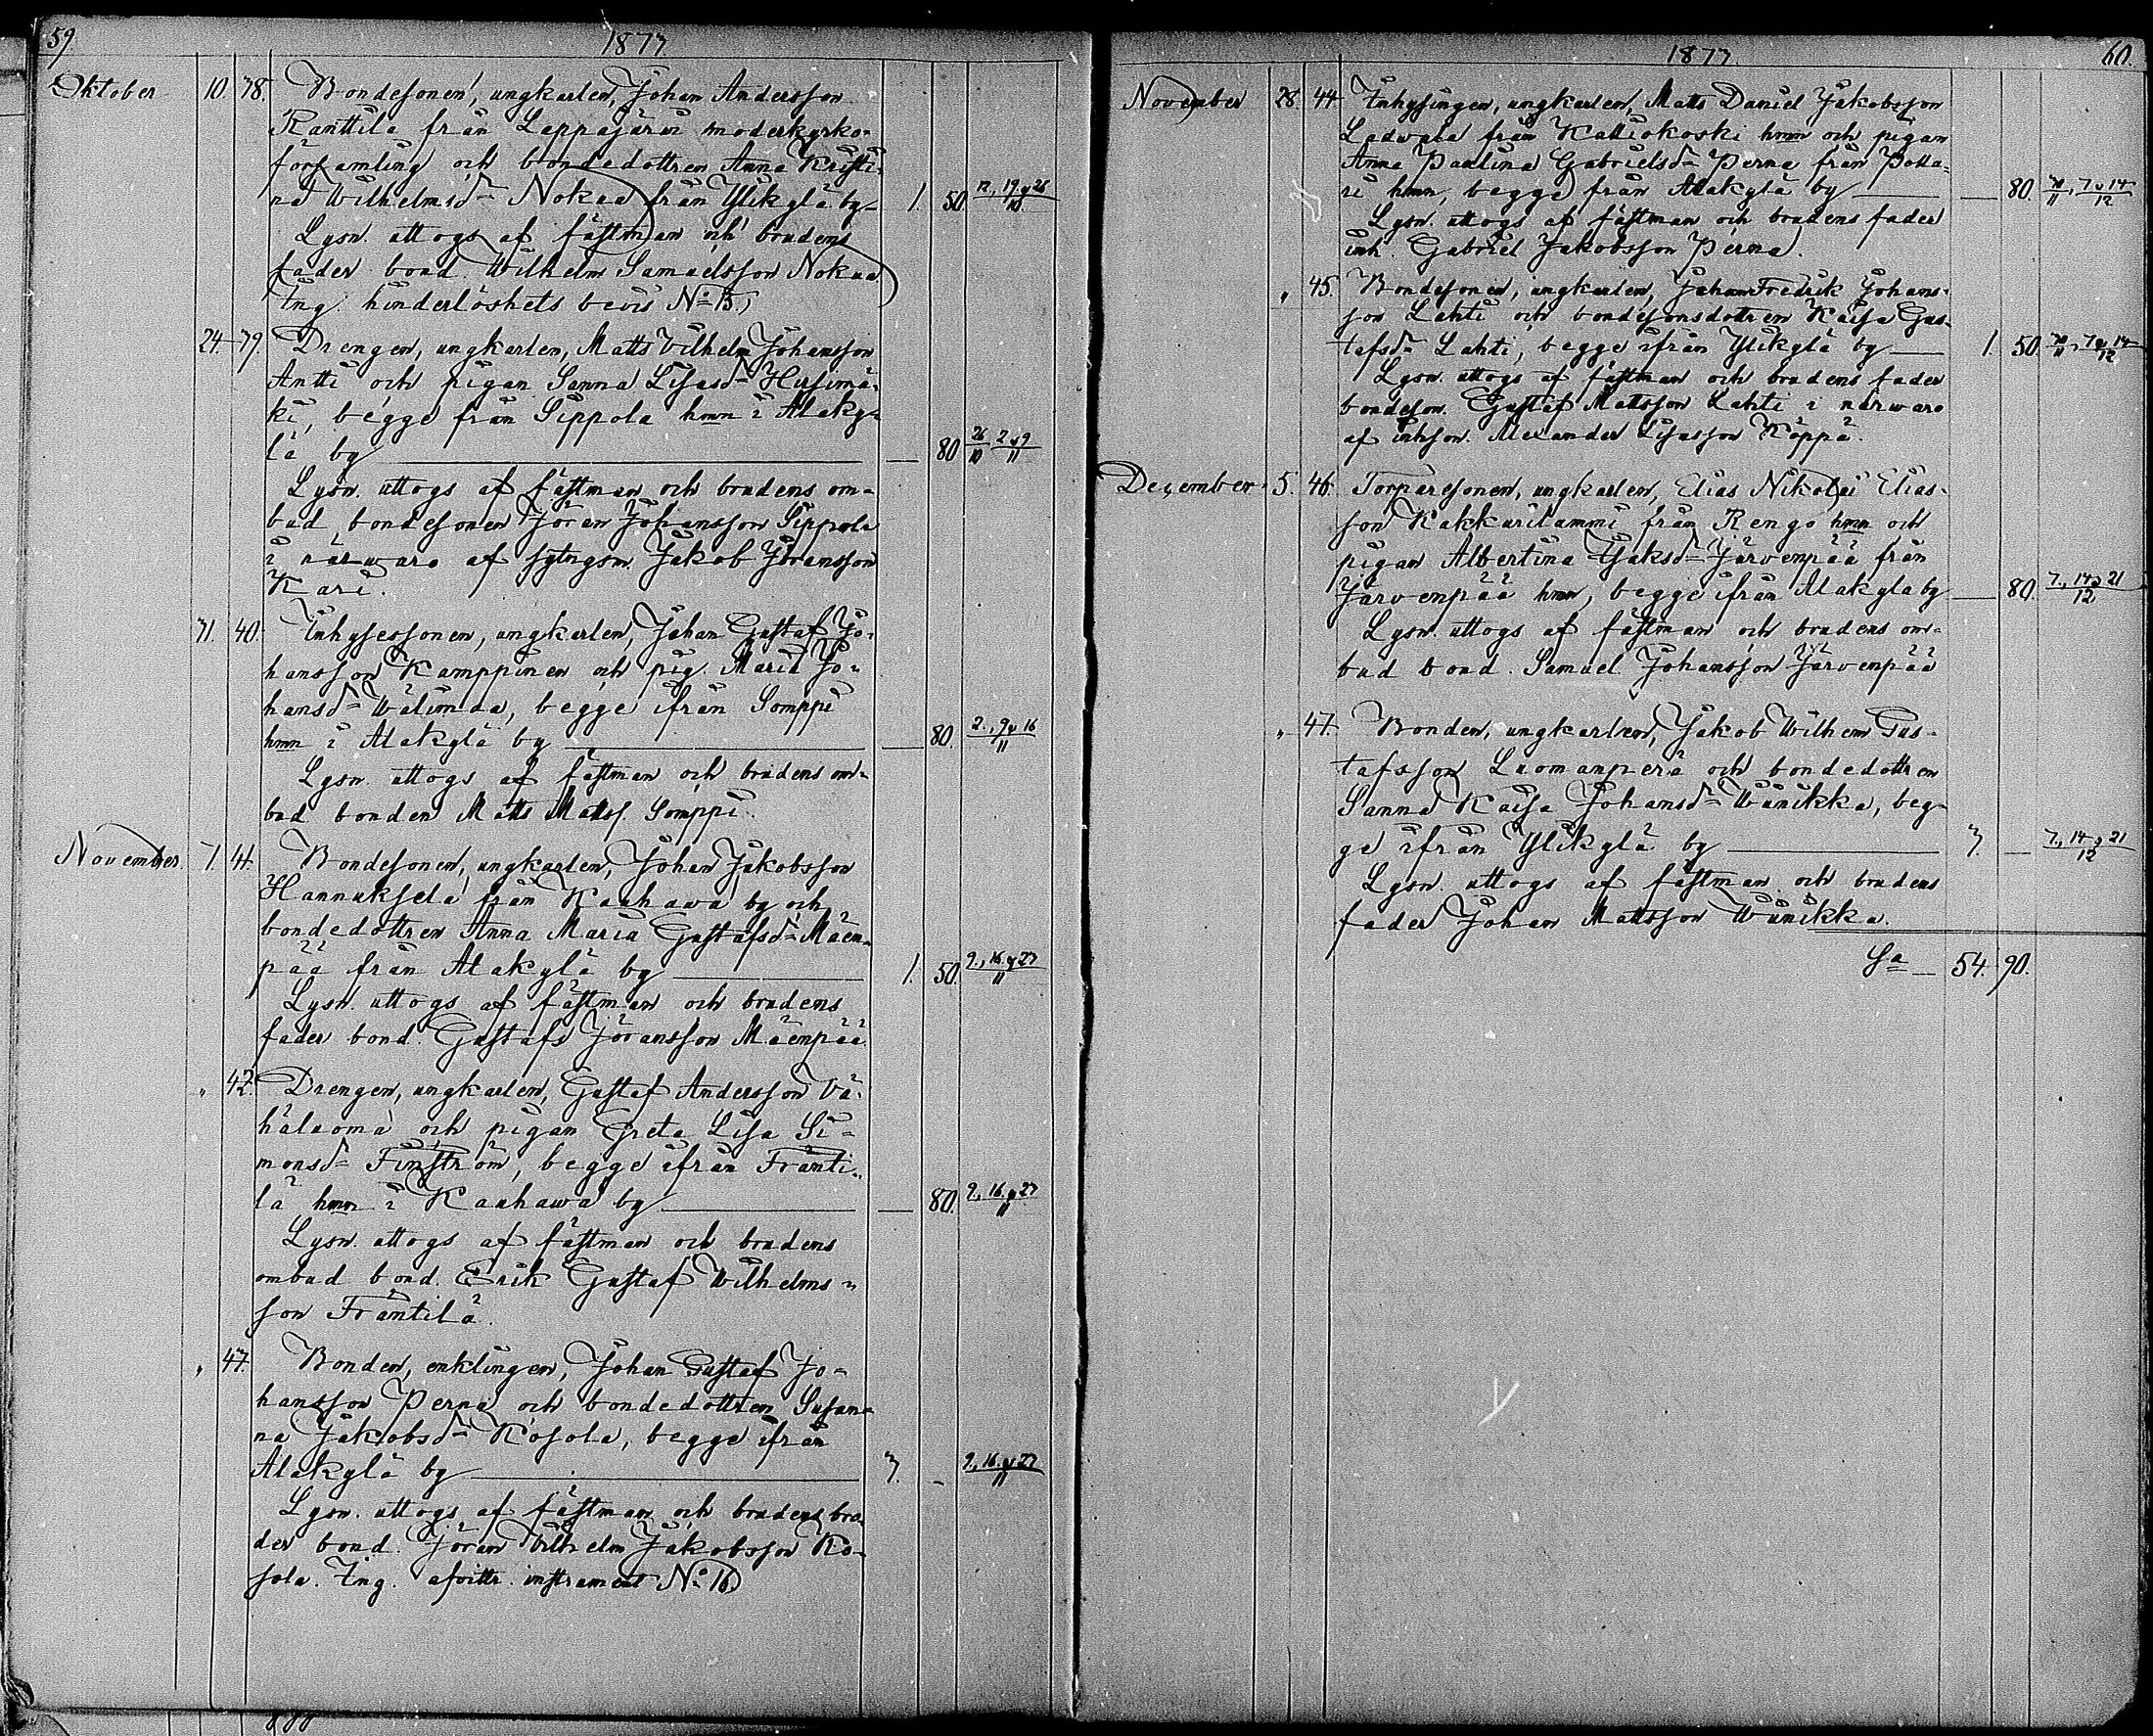 59.
1873
Oktober 10. 38. Bondesonen, ungkarlen, Johan Andersson
Ranttila från Lappajärvi moderkyrko-
församling och bondedottren Anna Kristi-
na Wilhelmsd:r Nokua från Ylikylä by— 1. 50. 12., 19. & 26/10
Lysn. uttogs af fästman och brudens
fader bond. Wilhelm Samuelsson Nokua
Ing. hinderlöshets bevis N:o 15.)
24. 39. Drengen, ungkarlen, Matts Vilhelm Johansson
Antti och pigan Sanna Lisasd:r Hirsimä-
ki, begge från Sippola hmn i Alaky-
lä by — 80 26/10 2 & 9/11
Lysn. uttogs af fästman och brudens om-
bud bondesonen Jöran Johansson Sippola
i närwaro af sytngsm. Jakob Jöransson
Kari.
31. 40. Inhysessonen, ungkarlen, Johan Gustaf Jo-
hansson Kamppinen och pig. Maria Jo-
hansd:r Wälimaa, begge ifrån Somppi
hmn i Alakylä by — 80. 2., 9 & 16/11
Lysn. uttogs af fästman och brudens om-
bud bonden Matts Matss. Somppi.
November. 7. 41. Bondesonen, ungkarlen, Johan Jakobsson
Hannuksela från Kauhawa by och
bondedottren Anna Maria Gustafsd:r Mäen-
pää från Alakylä by — 1. 50. 9., 16. & 23/11
Lysn. uttogs af fästman och brudens
fader bond. Gustafs Jöransson Mäenpää.
„ 42. Drengen, ungkarlen, Gustaf Andersson Vä-
häluoma och pigan Greta Lisa Si-
monsd:r Finström, begge ifrån Fränti-
lä hmn i Kauhawa by — 80. 9., 16. & 23/11
Lysn. uttogs af fästman och brudens
ombud bond. Erik Gustaf Wilhelms-
son Fräntilä.
„ 43. Bonden, enklingen, Johan Gustaf Jo-
hansson Perna och bondedottren Susan-
na Jakobsd:r Kosola, begge ifrån
Alakylä by — 3. – 9., 16. & 23/11
Lysn. uttogs af fästman och brudens bro-
der bond. Jöran Vilhelm Jakobsson Ko-
sola. Ing. afvittr. instrument N:o 16)
1873.
60.
November 28. 44. Inhysingen, ungkarlen, Matts Daniel Jakobsson
Ladwala från Kalliokoski hmn och pigan
Anna Paulina Gabrielsd:r Perna från Potta-
ri hmn, begge från Alakylä by — 80. 30/11, 7 & 14/12
Lysn. uttogs af fästman och brudens fader
inh. Gabriel Jakobsson Perna.
„ 45. Bondesonen, ungkarlen, Johan Fredrik Johans-
son Lahti och bondesonsdottren Kaisa Gus-
tafsd:r Lahti, begge ifrån Ylikylä by — 1. 50. 30/11, 7 & 14/12
Lysn. uttogs af fästman och brudens fader
bondeson. Gustaf Mattsson Lahti i närwaro
af inhson. Alexander Lisasson Köppä.
December 5. 46. Torparesonen, ungkarlen, Elias Nikolai Elias-
son Kakkurilammi från Rengo hmn och
pigan Albertina Isaksd:r Järvenpää från
Järvenpää hmn, begge ifrån Alakylä by — 80. 7., 14 & 21/12
Lysn. uttogs af fästman och brudens om-
bud bond. Samuel Johansson Järvenpää
„ 47. Bonden, ungkarlen, Jakob Wilhem Gus-
tafsson Luomanperä och bondedottren
Sanna Kaisa Johansd:r Wäinikka, beg-
ge ifrån Ylikylä by — 3. — 7., 14 & 21/12
Lysn. uttogs af fästman och brudens
fader Johan Mattsson Wäinikka.
S:a — 54. 90.